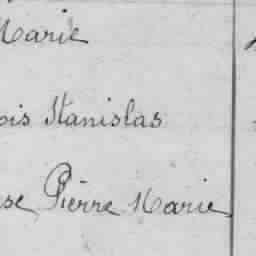 Marie
ois Stanislas
se Pierre Marie